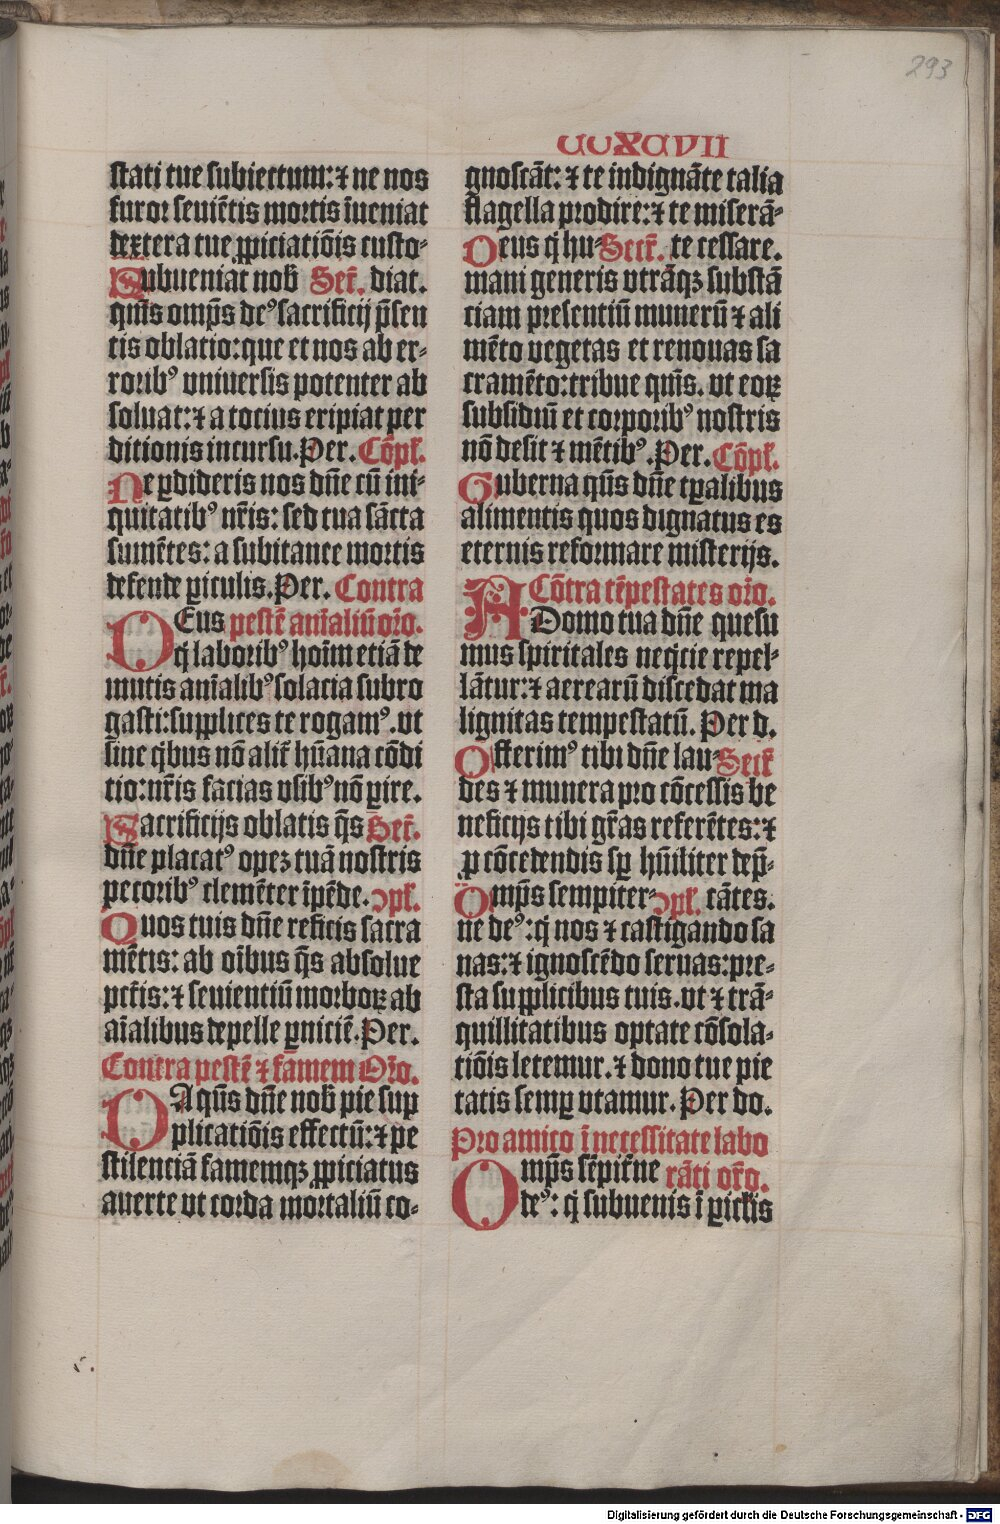 293
CCXCVII
stati tue subiectum: ⁊ ne nos
furor seuiẽtis mortis ĩueniat
dextera tue ꝓpiciatiõis custo⸗
Subueniat nob̃ Secr̃. diat.
quũs omp̃s deꝰ sacrificij p̃sen
tis oblatio: que et nos ab er⸗
roribꝰ vniuersis potenter ab
soluat: ⁊ a tocius eripiat per
ditionis incursu. Per. Cõpl̃.
Ne ꝑdideris nos dñe cũ ini⸗
quitatibꝰ nr̃is: sed tua sãcta
sumẽtes: a subitanee mortis
defende ꝑiculis. Per. Contra
DEus pestẽ aĩaliũ or̃o.
q̃ laboribꝰ hoĩm etiã de
mutis anĩalibꝰ solacia subro
gasti: supplices te rogamꝰ. vt
sine q̃bus nõ alit̃ hũana cõdi
tio: nr̃is facias vsibꝰ nõ ꝑire.
Sacrificijs oblatis q̃s Secr̃.
dñe placatꝰ opeꝫ tuã nostris
pecoribꝰ clemẽter ĩpẽde. ↄpl̃.
Quos tuis dñe reficis sacra
mẽtis: ab oĩbus q̃s absolue
pct̃is: ⁊ seuientiũ morboꝝ ab
aĩalibus depelle ꝑniciẽ. Per.
Contra pestẽ ⁊ famem Or̃o.
DA qũs dñe nob̃ pie sup
plicatiõis effectũ: ⁊ pe
stilenciã famemqꝫ ꝓpiciatus
auerte vt corda mortaliũ co⸗
gnoscãt: ⁊ te indignãte talia
flagella prodire: ⁊ te miserã⸗
Deus q̃ hu⸗ Secr̃. te cessare.
mani generis vtrãqꝫ substã
ciam presentiũ munerũ ⁊ ali
mẽto vegetas et renouas sa
cramẽto: tribue qũs. vt eoꝝ
subsidiũ et corporibꝰ nostris
nõ desit ⁊ mẽtibꝰ. Per. Cõpl̃.
Guberna qũs dñe tꝑalibus
alimentis quos dignatus es
eternis reformare misterijs.
Cõtra tẽpestates or̃o.
ADomo tua dñe quesu
mus spiritales neq̃cie repel⸗
lãtur: ⁊ aerearũ discedat ma
lignitas tempestatũ. Per d.
Offerimꝰ tibi dñe lau⸗ Secr̃
des ⁊ munera pro cõcessis be
neficijs tibi gr̃as referẽtes: ⁊
ꝓ cõcedendis sp̃ hũiliter dep̃⸗
Omp̃s sempiter⸗ ↄpl̃. cãtes.
ne deꝰ: q̃ nos ⁊ castigando sa
nas: ⁊ ignoscẽdo seruas: pre⸗
sta supplicibus tuis. vt ⁊ trã⸗
quillitatibus optate cõsola⸗
tiõis letemur. ⁊ dono tue pie
tatis semꝑ vtamur. Per do.
Pro amico ĩ necessitate labo
Omp̃s sẽpit̃ne rãti or̃o.
deꝰ: q̃ subuenis ĩ ꝑicl̃is
Digitalisierung gefördert durch die Deutsche Forschungsgemeinschaft - DFG